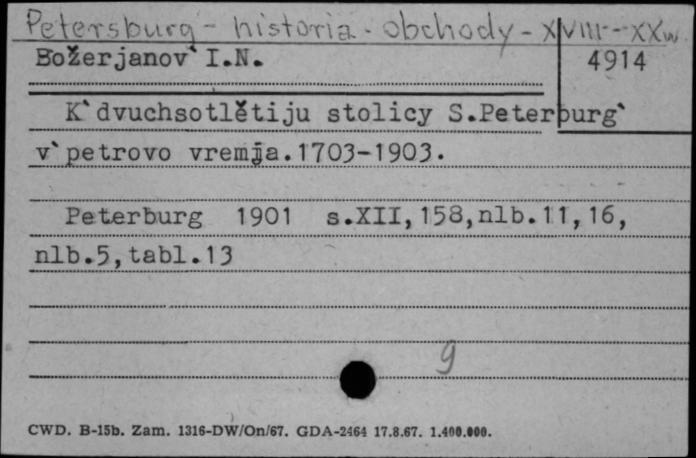 Petersburg - historia - obchody - XVIII - XXw
Božerjanov` I.N.
4914
K`dvuchsotlětiju stolicy S.Peterburg`
v`petrovo vremja.1703-1903.
Peterburg 1901 s.XII,158,nlb.11,16,
nlb.5,tabl.13
9
CWD. B-15b. Zam. 1316-DW/On/67. GDA-2464 17.8.67. 1.400.000.